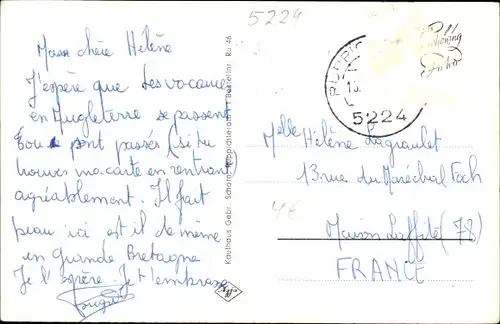 5224
Ma chère Hélène
J'espère que tes vacances
en Angleterre se passent
ou se sont passés (si tu
trouves ma carte en rentrant)
agréablement. Il fait
beau ici est il de même
en Grande Bretagne
Je l'espère. Je t'embrasse
Kaufhaus Gebr. Schard,
Bestellnr. Ru 46
5224
Melle Hélène Lagraulet
13 rue du Maréchal Foch
4€
Maison Laffite (78)
FRANCE